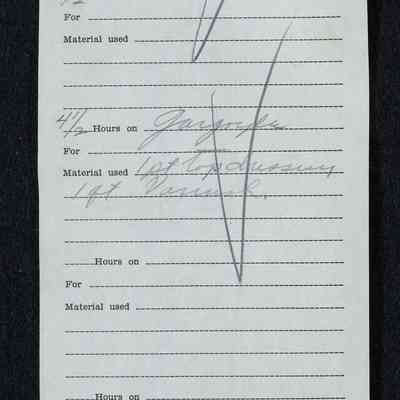 For
Material used
4½ Hours on Gargoyle
For
Material used 1 pt top dressing
1 qt Varnish,
Hours on
For
Material used
Hours on